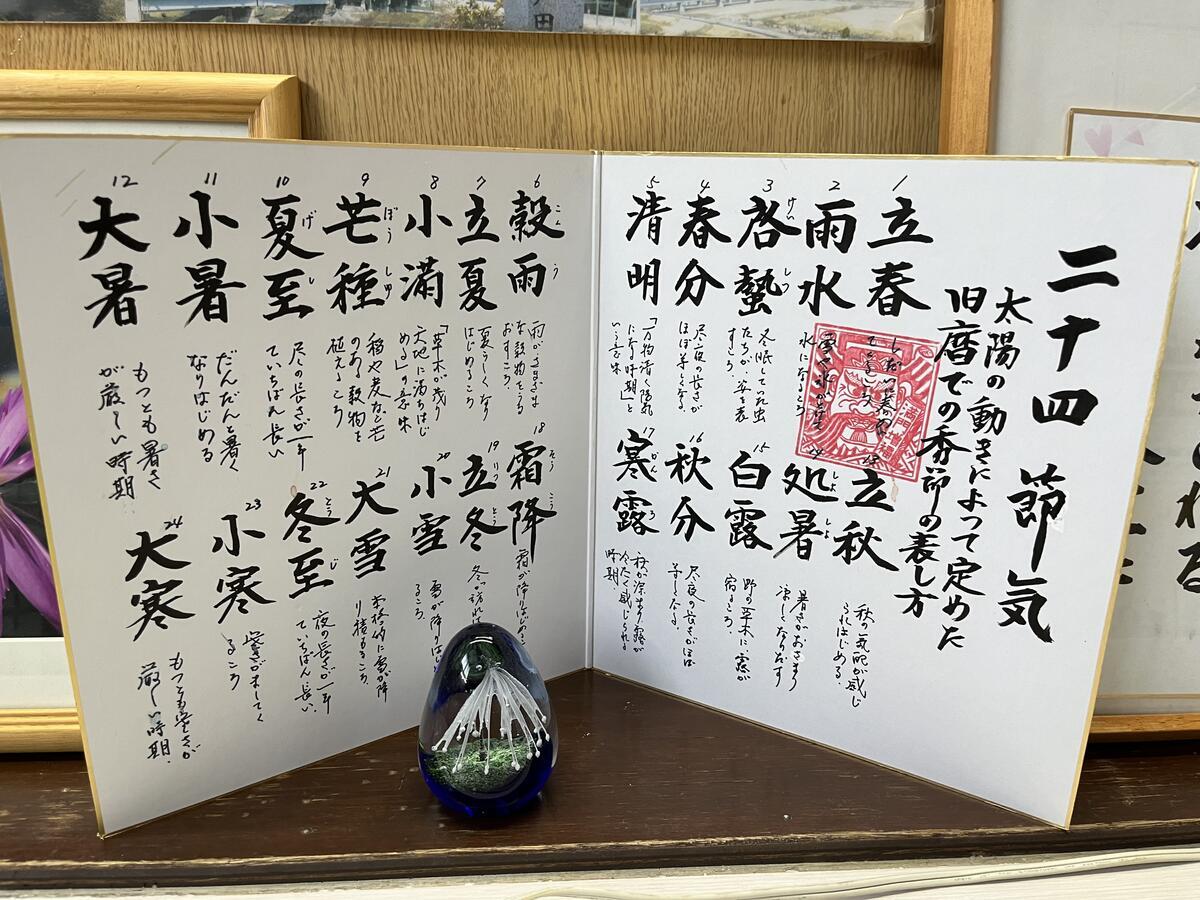 二十四節気
太陽の動きによって定めた
旧暦での季節の表し方
1
立春
2
雨水
水になるころ
3
啓蟄
けい
ちつ
冬眠していた虫
たちが、姿を表
すころ
4
春分
昼夜の長さが
ほぼ等しくなる。
5
清明
「万物清く陽気
になる時期」と
いう意味
6
穀雨
こく
う
雨がさまざま
な穀物をうる
おすころ
7
立夏
夏らしくなり
はじめるころ
8
小満
「草木が茂り
天地に満ちはじ
める」の意味
9
芒種
ぼう
しゅ
稲や麦など芒
のある穀物を
植えるころ
10
夏至
げ
し
昼の長さが一年
でいちばん長い
11
小暑
だんだんと暑く
なりはじめる
12
大暑
もっとも暑さ
が厳しい時期
13
立秋
秋の気配が感じ
られはじめる。
14
処暑
しょ
しょ
暑さがおさまり
涼しくなりだす
15
白露
野の草木に露が
宿るころ。
16
秋分
昼夜の長さがほぼ
等しくなる。
17
寒露
かん
ろ
秋が深まり露が
冷たく感じられる
時期。
18
霜降
そう
こう
霜が降りはじめる
19
立冬
りっ
とう
冬の訪れ
20
小雪
雪が降りはじ
るころ。
21
大雪
本格的に雪が降
り積もるころ。
22
冬至
とう
じ
夜の長さが一年
でいちばん長い。
23
小寒
寒さがましてく
るころ
24
大寒
もっとも寒さが
厳しい時期。